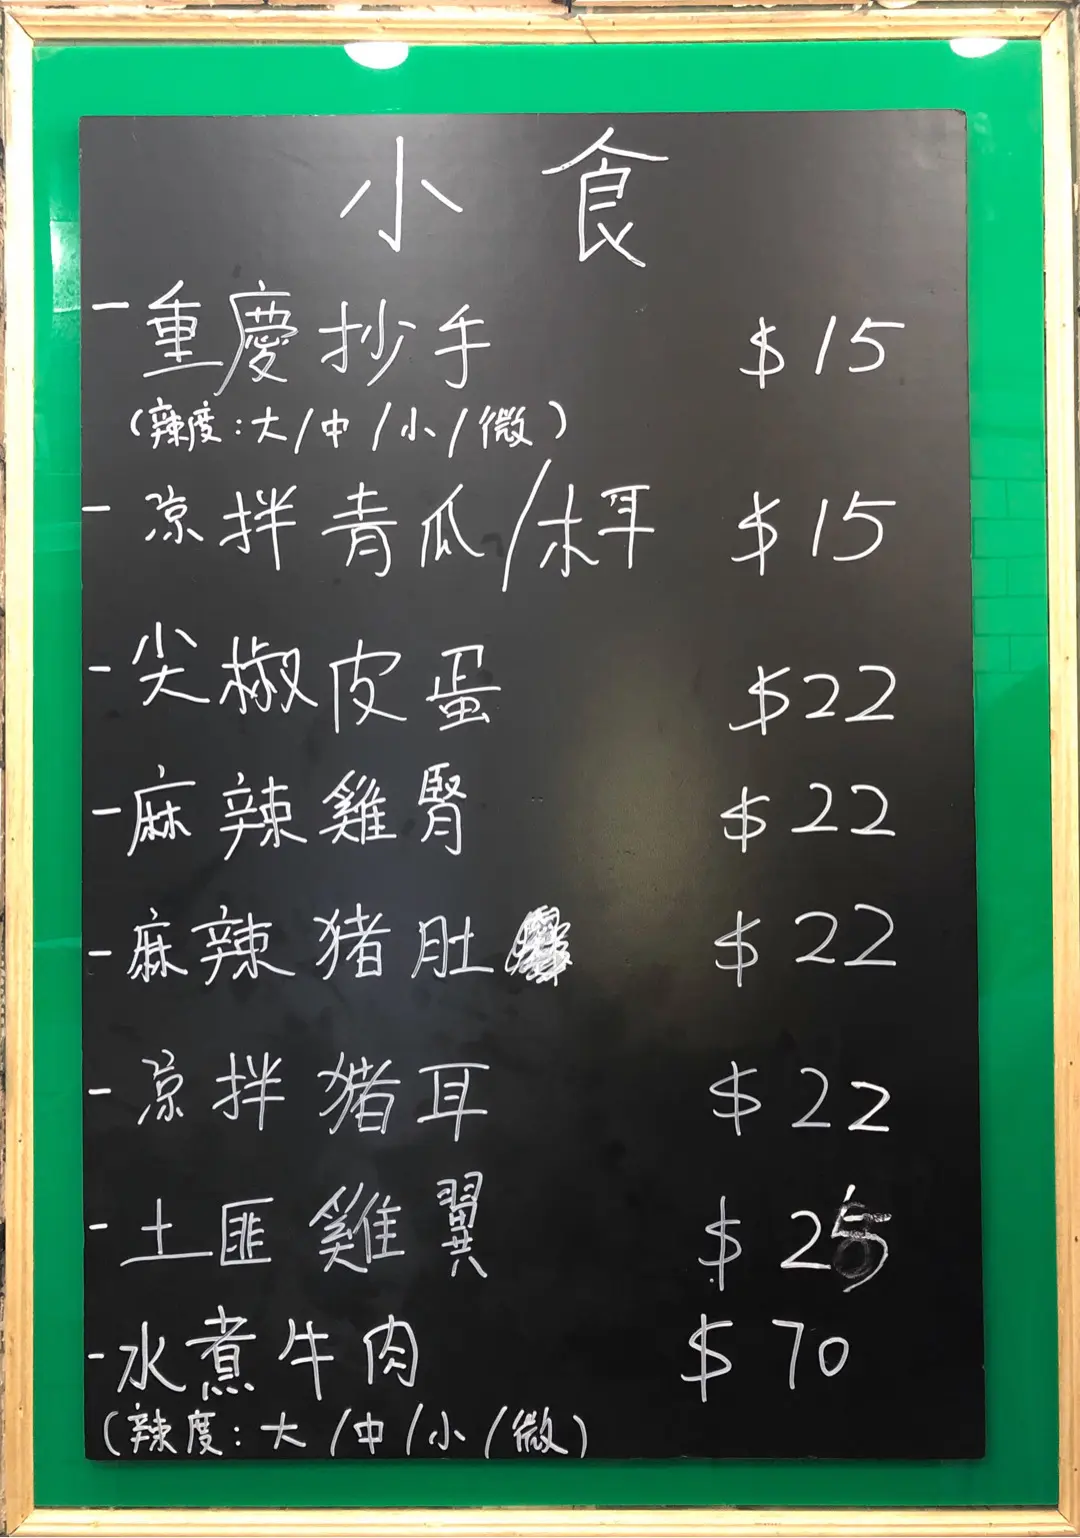 小食
- 重慶抄手 $15
(辣度:大/中/小/微)
- 凉拌青瓜/木耳 $15
- 尖椒皮蛋 $22
- 麻辣雞腎 $22
- 麻辣猪肚 $22
- 凉拌猪耳 $22
- 土匪雞翼 $25
- 水煮牛肉 $70
(辣度:大/中/小/微)